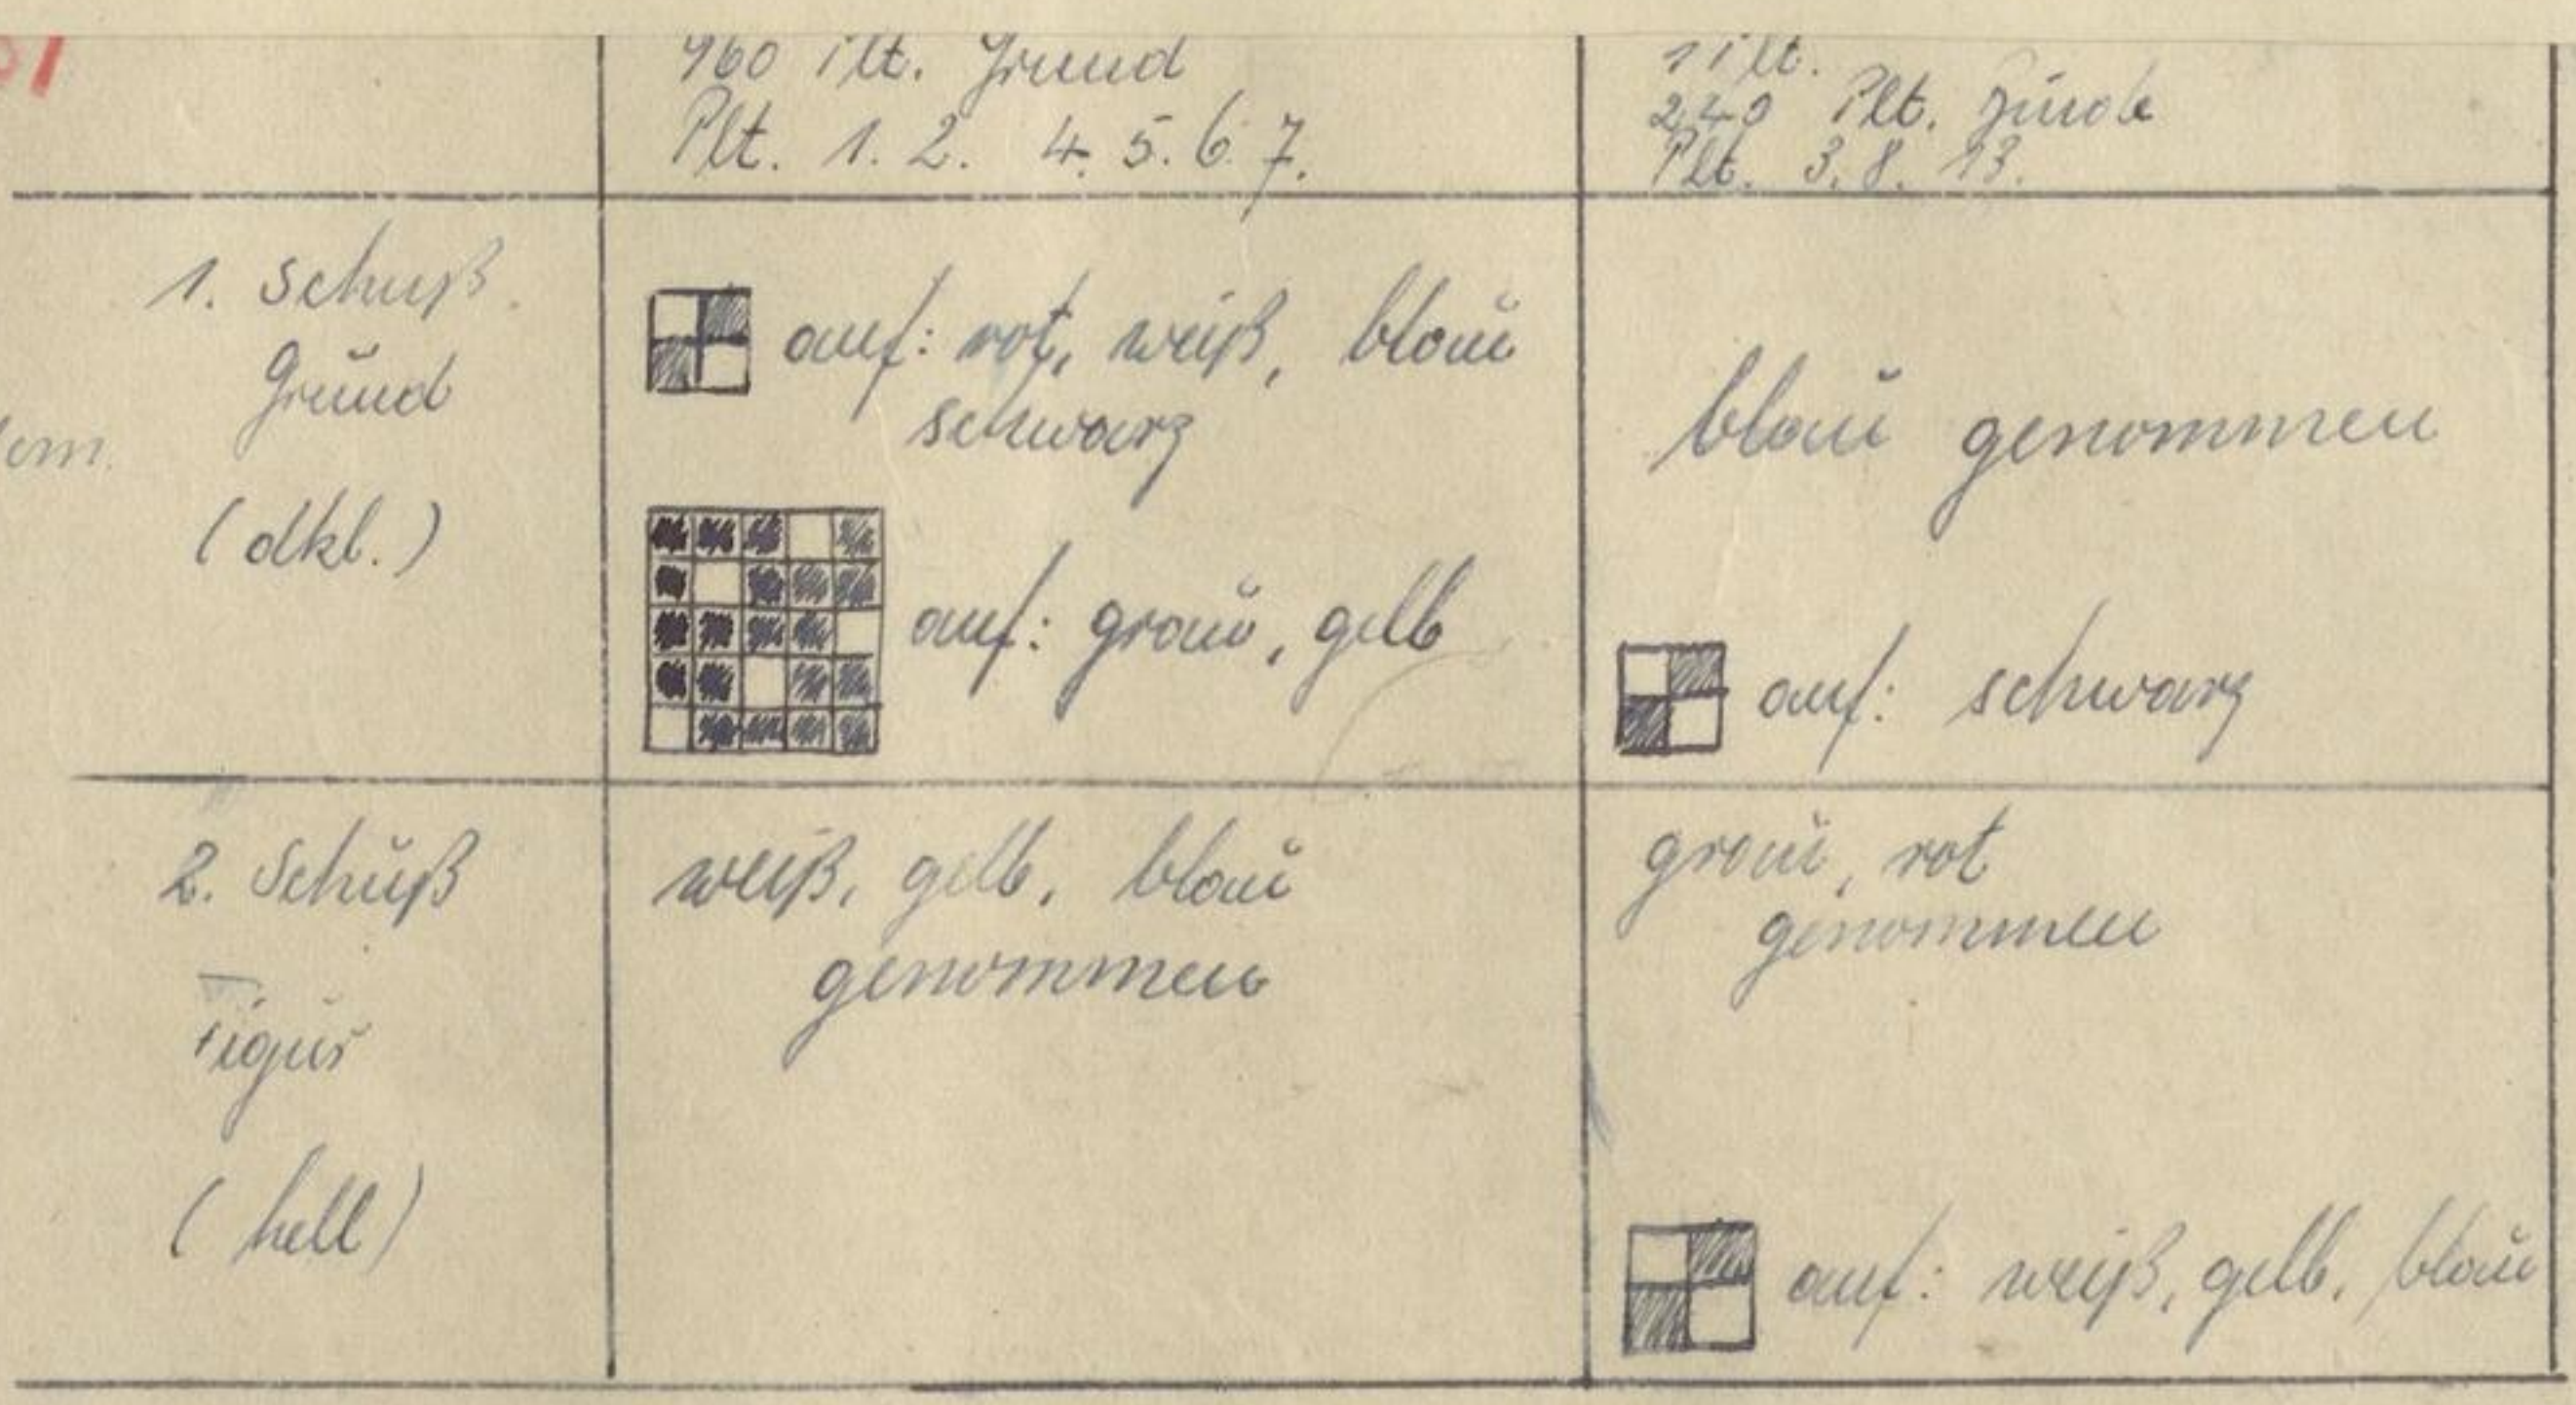 960 Plt. Grund
Plt. 1. 2. 4. 5. 6. 7.
Plt.
240 Plt.
Plt. 3. 8. 13.
1. Schuß
Grund
(dkl.)
auf: rot, weiß, blau
schwarz
auf: grau, gelb
blau genommen
auf: schwarz
2. Schuß
Figur
(hell)
weiß, gelb, blau
genommen
grau, rot
genommen
auf: weiß, gelb, blau